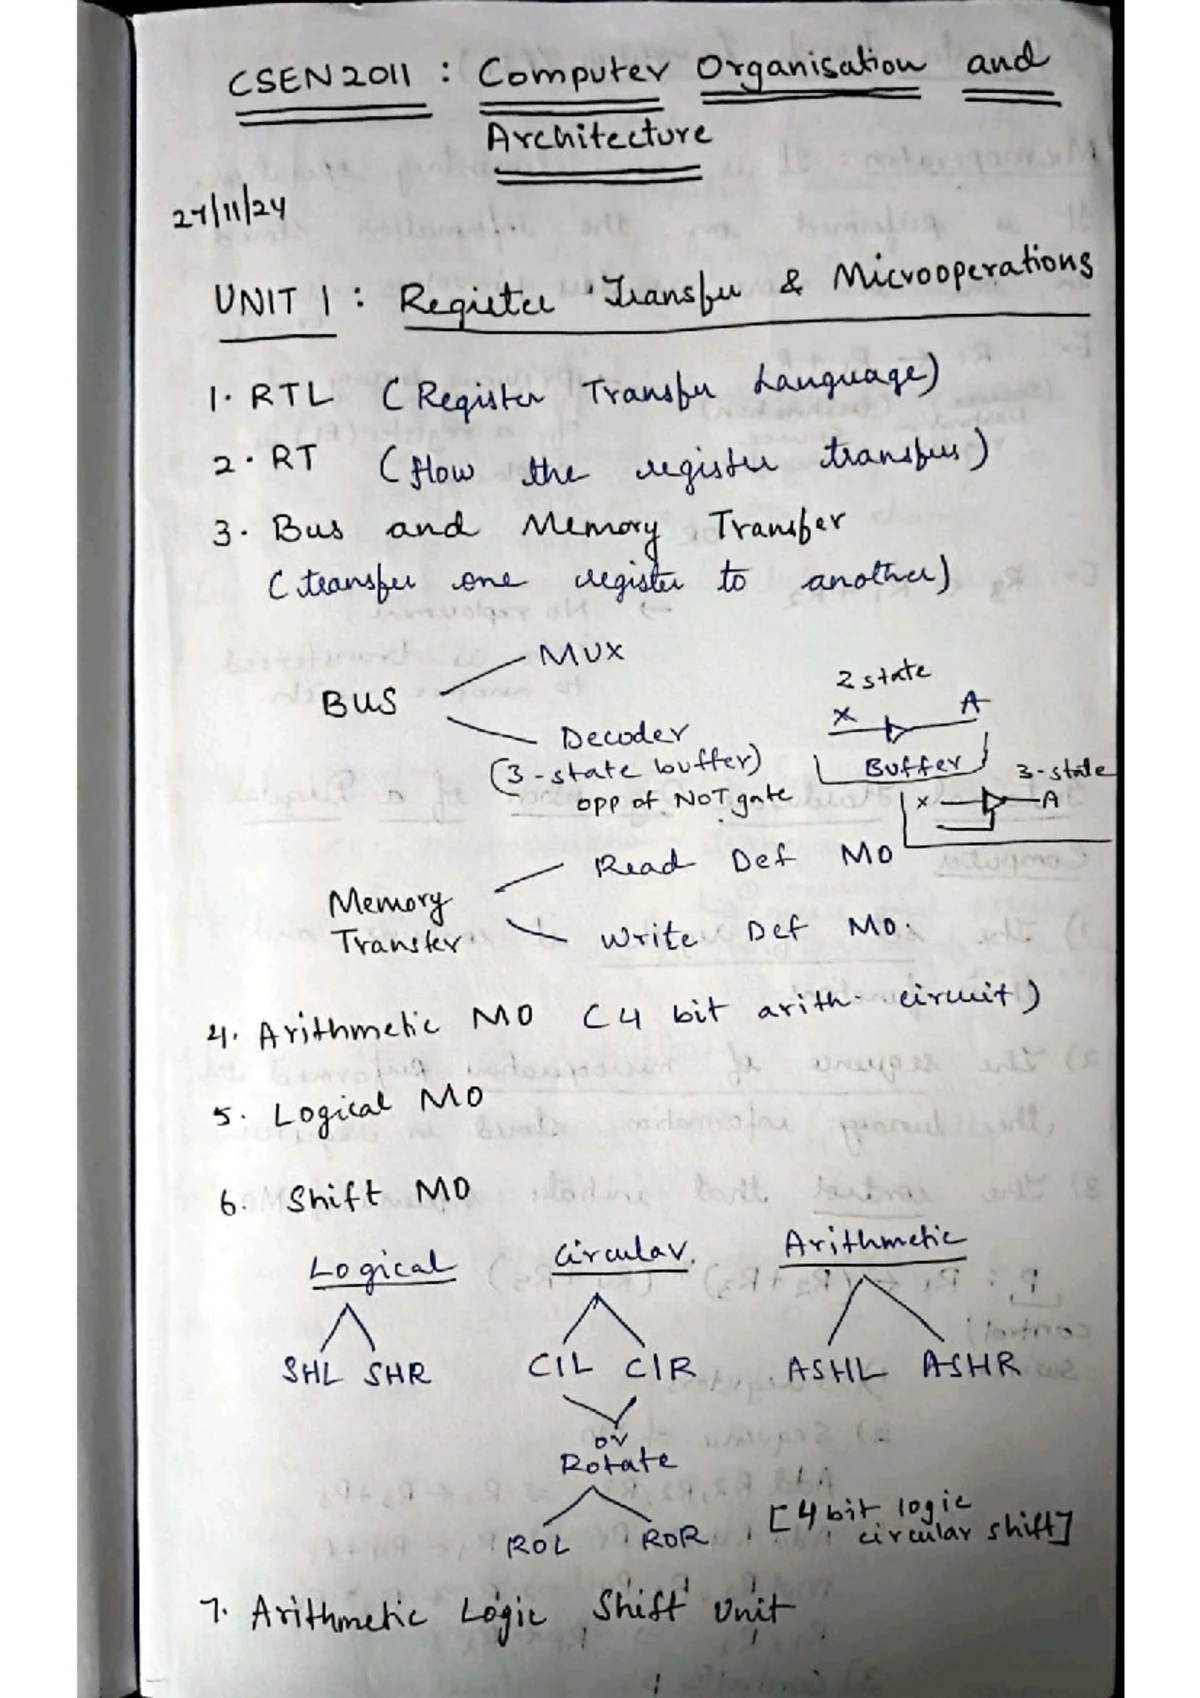 CSEN2011 : Computer Organisation and
Architecture
27/11/24
UNIT 1 : Register Transfer & Microoperations
1. RTL (Register Transfer Language)
2. RT (How the register transfers)
3. Bus and Memory Transfer
(transfer one register to another)
BUS
MUX
Decoder
(3-state buffer)
opp of NOT gate
2 state
X A
Buffer
3-state
x A
Memory
Transfer
Read Def MO
Write Def MO.
4. Arithmetic MO (4 bit arith. circuit)
5. Logical MO
6. Shift MO
Logical Circular. Arithmetic
SHL SHR CIL CIR ASHL ASHR
or
Rotate
ROL ROR [4 bit logic
circular shift]
7. Arithmetic Logic Shift Unit